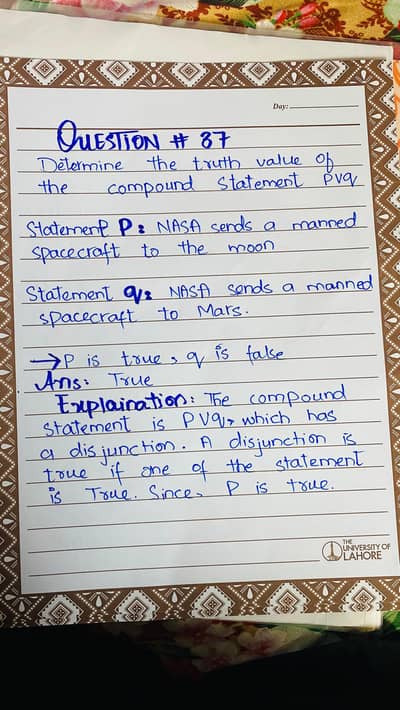 Day:
QUESTION # 37
Determine the truth value of
the compound Statement PVq
Statement P: NASA sends a manned
spacecraft to the moon
Statement q: NASA sends a manned
spacecraft to Mars.
→P is true, q is false
Ans: True
Explaination: The compound
Statement is PVq, which has
a disjunction. A disjunction is
true if one of the statement
is True. Since, P is true.
THE
UNIVERSITY OF
LAHORE